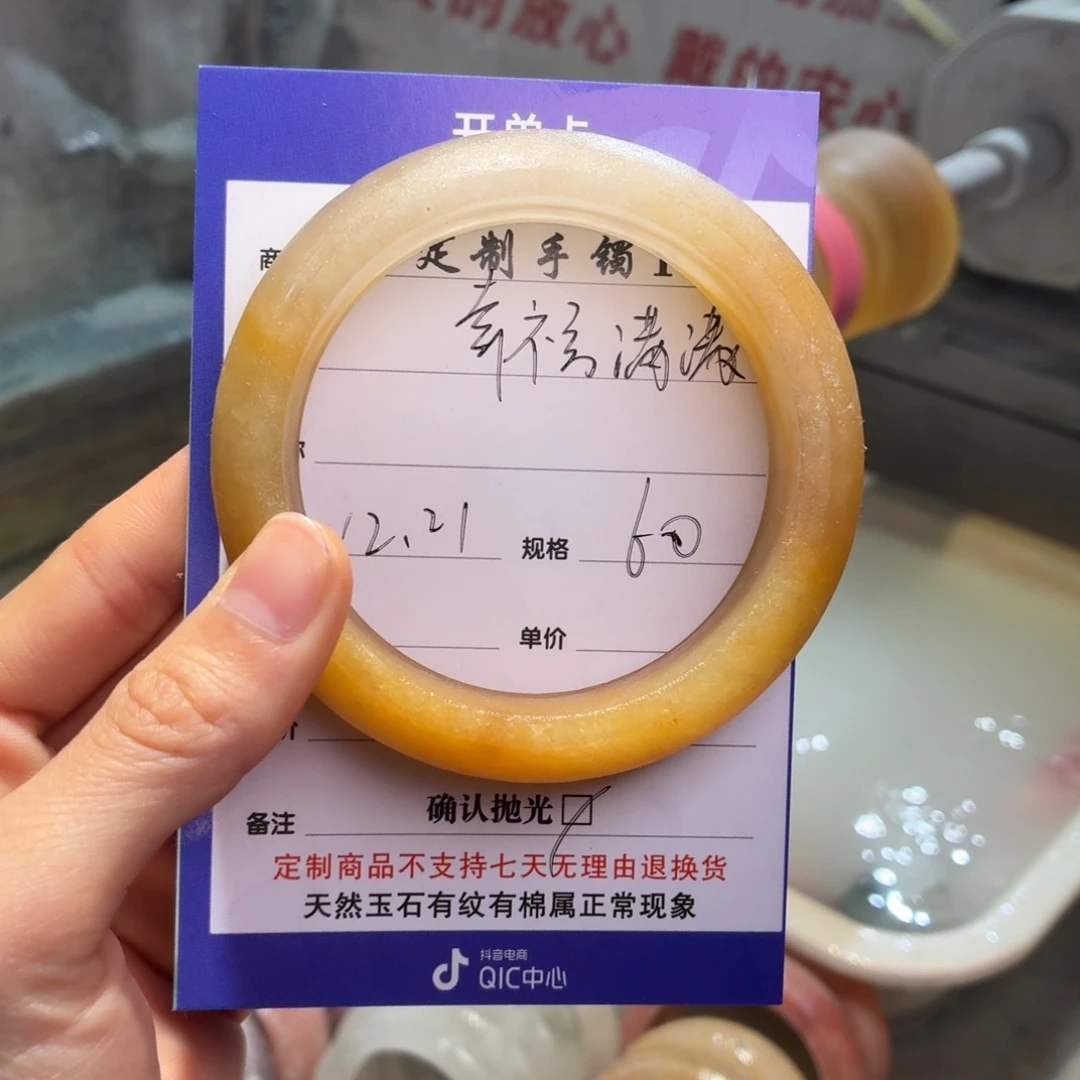 的放心 戴的安心
开单卡
商
定制手镯1
幸福满满
12.21 规格 60
单价
价
确认抛光
备注
定制商品不支持七天无理由退换货
天然玉石有纹有棉属正常现象
抖音电商
QIC中心